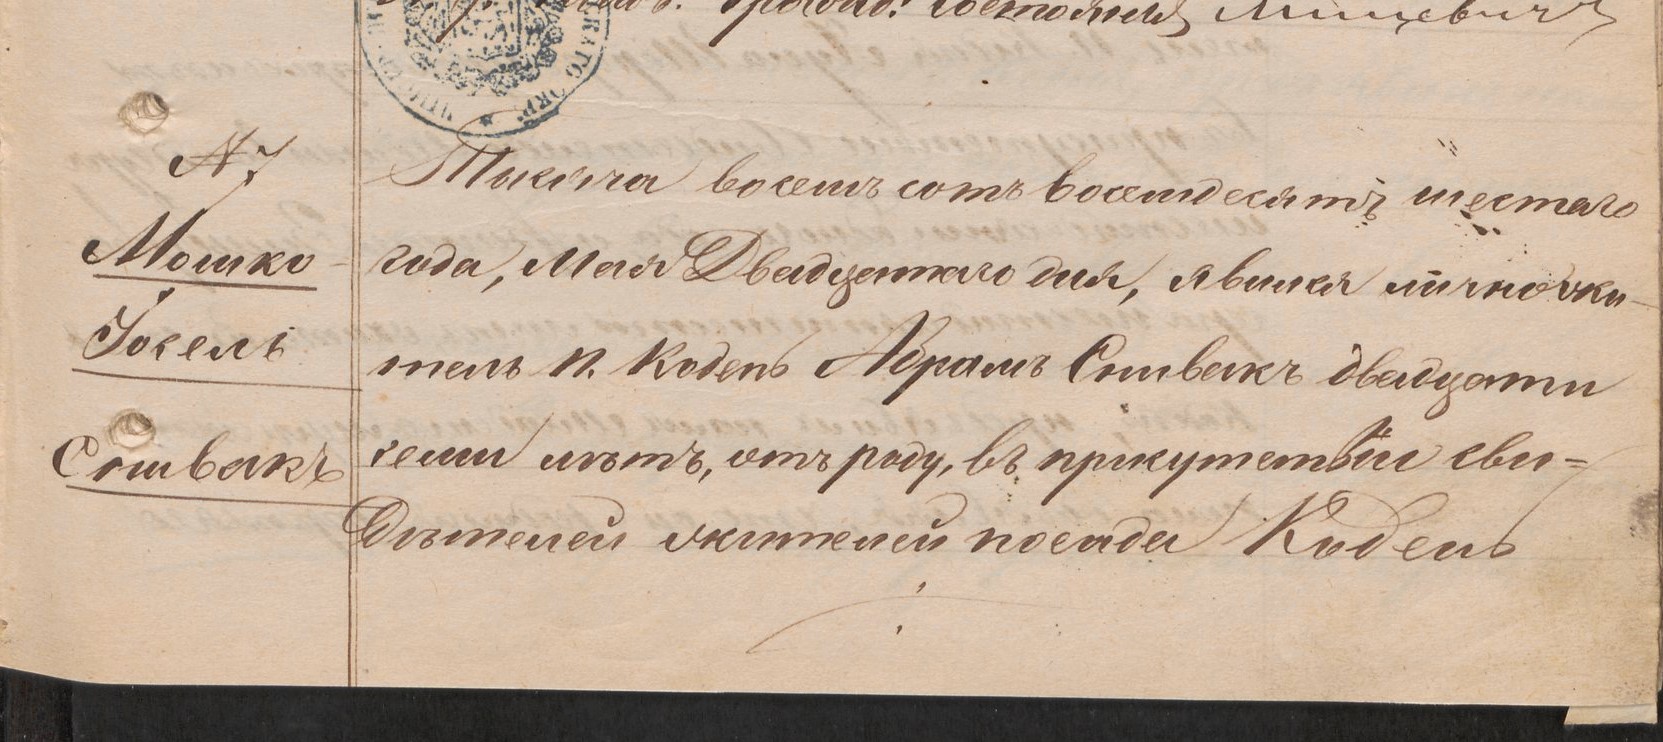 гражд. состоянія Мицевичъ
№ 7
Мошко
Іосель
Спивакъ
Тысяча восемь сотъ восемдесятъ шестаго
года, Мая Двадцатаго дня, явился лично жи-
тель п. Кодень Абрамъ Спивакъ двадцати
семи лѣтъ, отъ роду, въ присутствіи сви=
Дѣтелей жителей посада Кодень